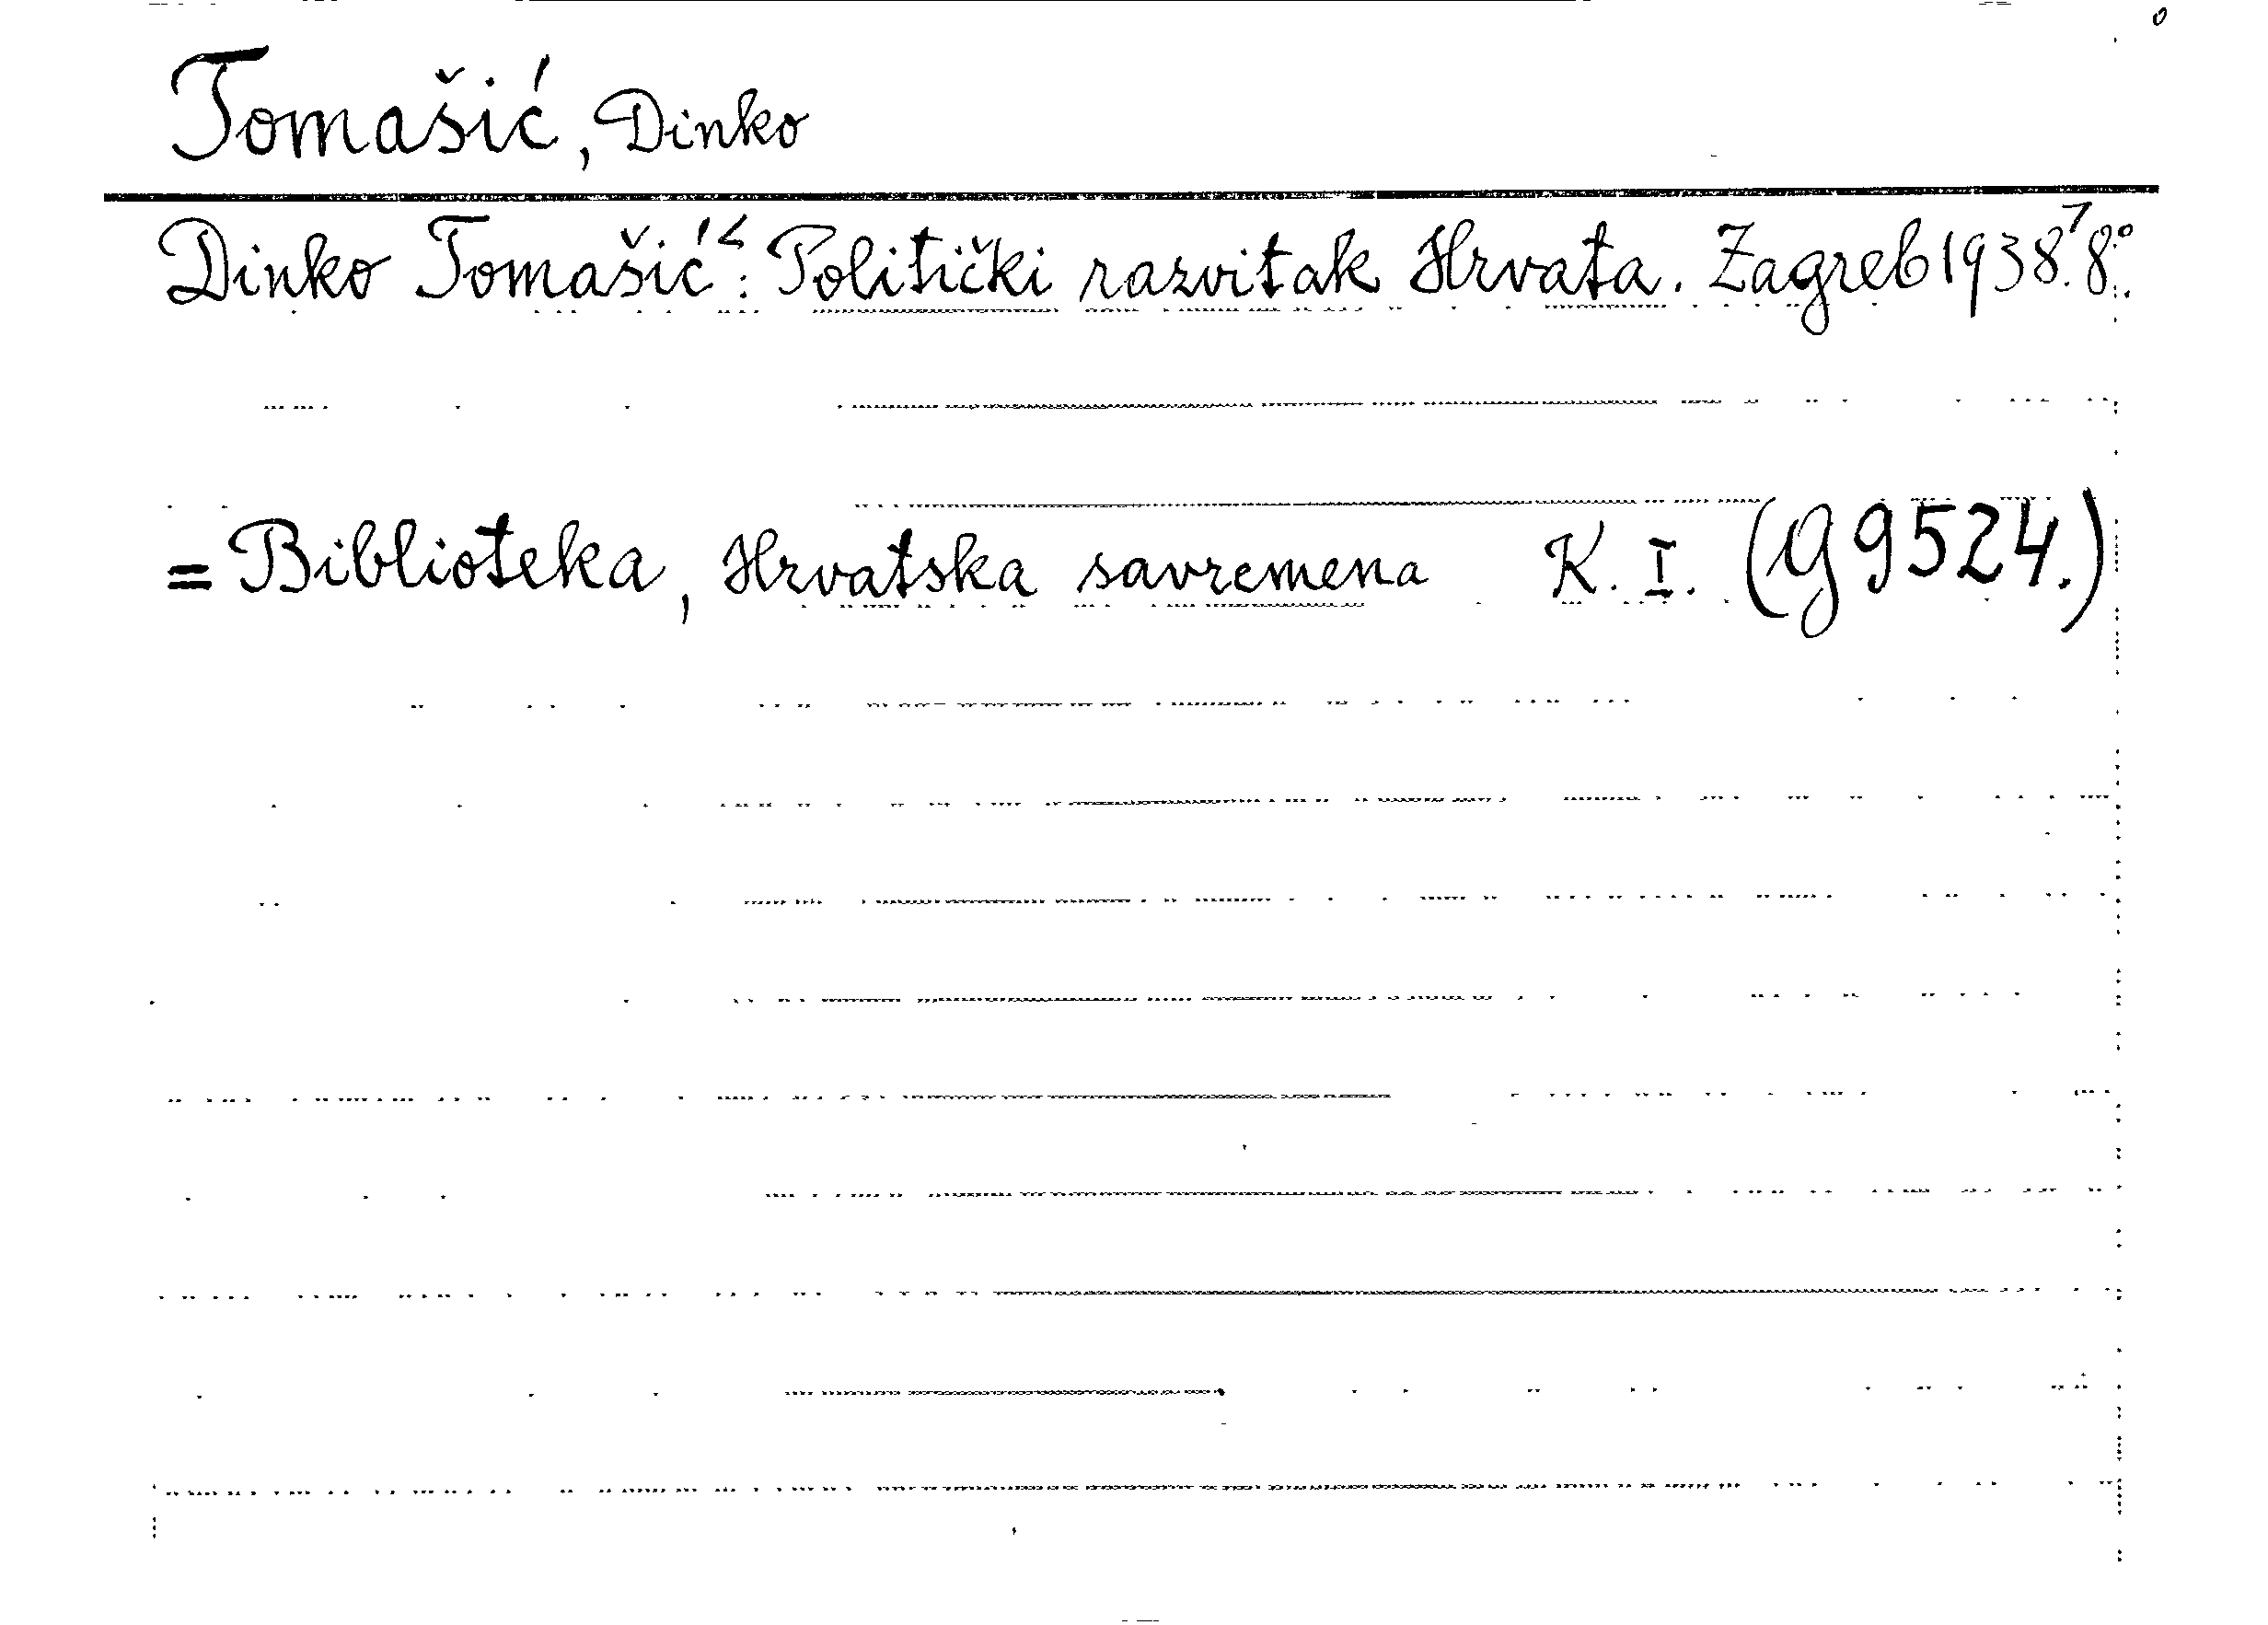 Tomašić, Dinko
Dinko Tomašić<: Politički razvitak Hrvata. Zagreb 1938.⁷ 8°.
= Biblioteka, Hrvatska savremena K. I. (G 9524.)